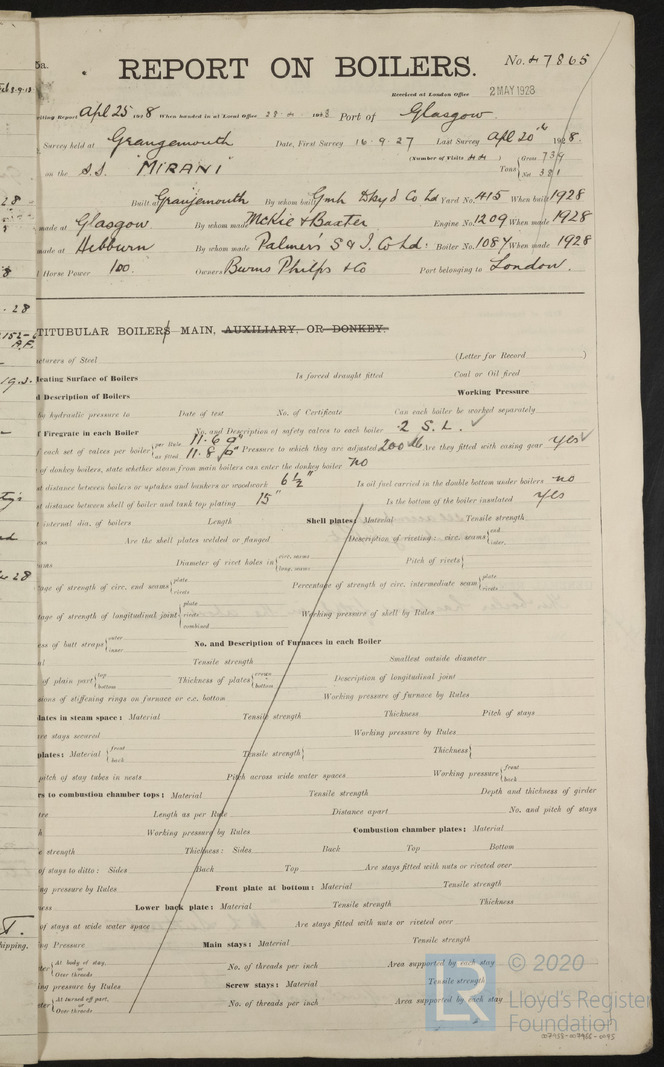 5a.
REPORT ON BOILERS.
No. 47865
Received at London Office 2 MAY 1928
writing Report Apl 25 1928 When handed in at Local Office 28.4. 1928 Port of Glasgow
Survey held at Grangemouth Date, First Survey 16.9.27 Last Survey Apl 20th 1928.
on the S.S. "MIRANI" (Number of Visits 44) Tons { Gross 739 Net 381
Built at Grangemouth By whom built Gmh Dkyd Co Ld Yard No. 415 When built 1928
made at Glasgow By whom made McKie & Baxter Engine No. 1209 When made 1928
made at Hebburn By whom made Palmers S & I. Co Ld. Boiler No. 1087 When made 1928
Horse Power 100 Owners Burns Philp & Co Port belonging to London.
TITUBULAR BOILERS MAIN, AUXILIARY, OR DONKEY.
cturers of Steel (Letter for Record )
Heating Surface of Boilers Is forced draught fitted Coal or Oil fired
d Description of Boilers Working Pressure
by hydraulic pressure to Date of test No. of Certificate Can each boiler be worked separately
f Firegrate in each Boiler No. and Description of safety valves to each boiler 2 S.L. ✓
f each set of valves per boiler { per Rule 11.6 as fitted 11.8 Pressure to which they are adjusted 200 lb Are they fitted with easing gear yes ✓
of donkey boilers, state whether steam from main boilers can enter the donkey boiler no
st distance between boilers or uptakes and bunkers or woodwork 6½" Is oil fuel carried in the double bottom under boilers no
st distance between shell of boiler and tank top plating 15" Is the bottom of the boiler insulated yes
t internal dia. of boilers Length Shell plates: Material Tensile strength
ess Are the shell plates welded or flanged Description of riveting: circ. seams { end inter.
ams Diameter of rivet holes in { circ. seams long. seams Pitch of rivets {
tage of strength of circ. end seams { plate rivets Percentage of strength of circ. intermediate seam { plate rivets
tage of strength of longitudinal joint { plate rivets combined Working pressure of shell by Rules
ess of butt straps { outer inner No. and Description of Furnaces in each Boiler
al Tensile strength Smallest outside diameter
of plain part { top bottom Thickness of plates { crown bottom Description of longitudinal joint
sions of stiffening rings on furnace or c.c. bottom Working pressure of furnace by Rules
lates in steam space: Material Tensile strength Thickness Pitch of stays
are stays secured Working pressure by Rules
plates: Material { front back Tensile strength { Thickness {
pitch of stay tubes in nests Pitch across wide water spaces Working pressure { front back
rs to combustion chamber tops: Material Tensile strength Depth and thickness of girder
re Length as per Rule Distance apart No. and pitch of stays
h Working pressure by Rules Combustion chamber plates: Material
e strength Thickness: Sides Back Top Bottom
of stays to ditto: Sides Back Top Are stays fitted with nuts or riveted over
ng pressure by Rules Front plate at bottom: Material Tensile strength
ness Lower back plate: Material Tensile strength Thickness
of stays at wide water space Are stays fitted with nuts or riveted over
ng Pressure Main stays: Material Tensile strength
ter { At body of stay, or Over threads No. of threads per inch Area supported by each stay
ng pressure by Rules Screw stays: Material Tensile strength
eter { At turned off part, or Over threads No. of threads per inch Area supported by each stay
LR © 2020
Lloyd's Register
Foundation
007953-007966-0095